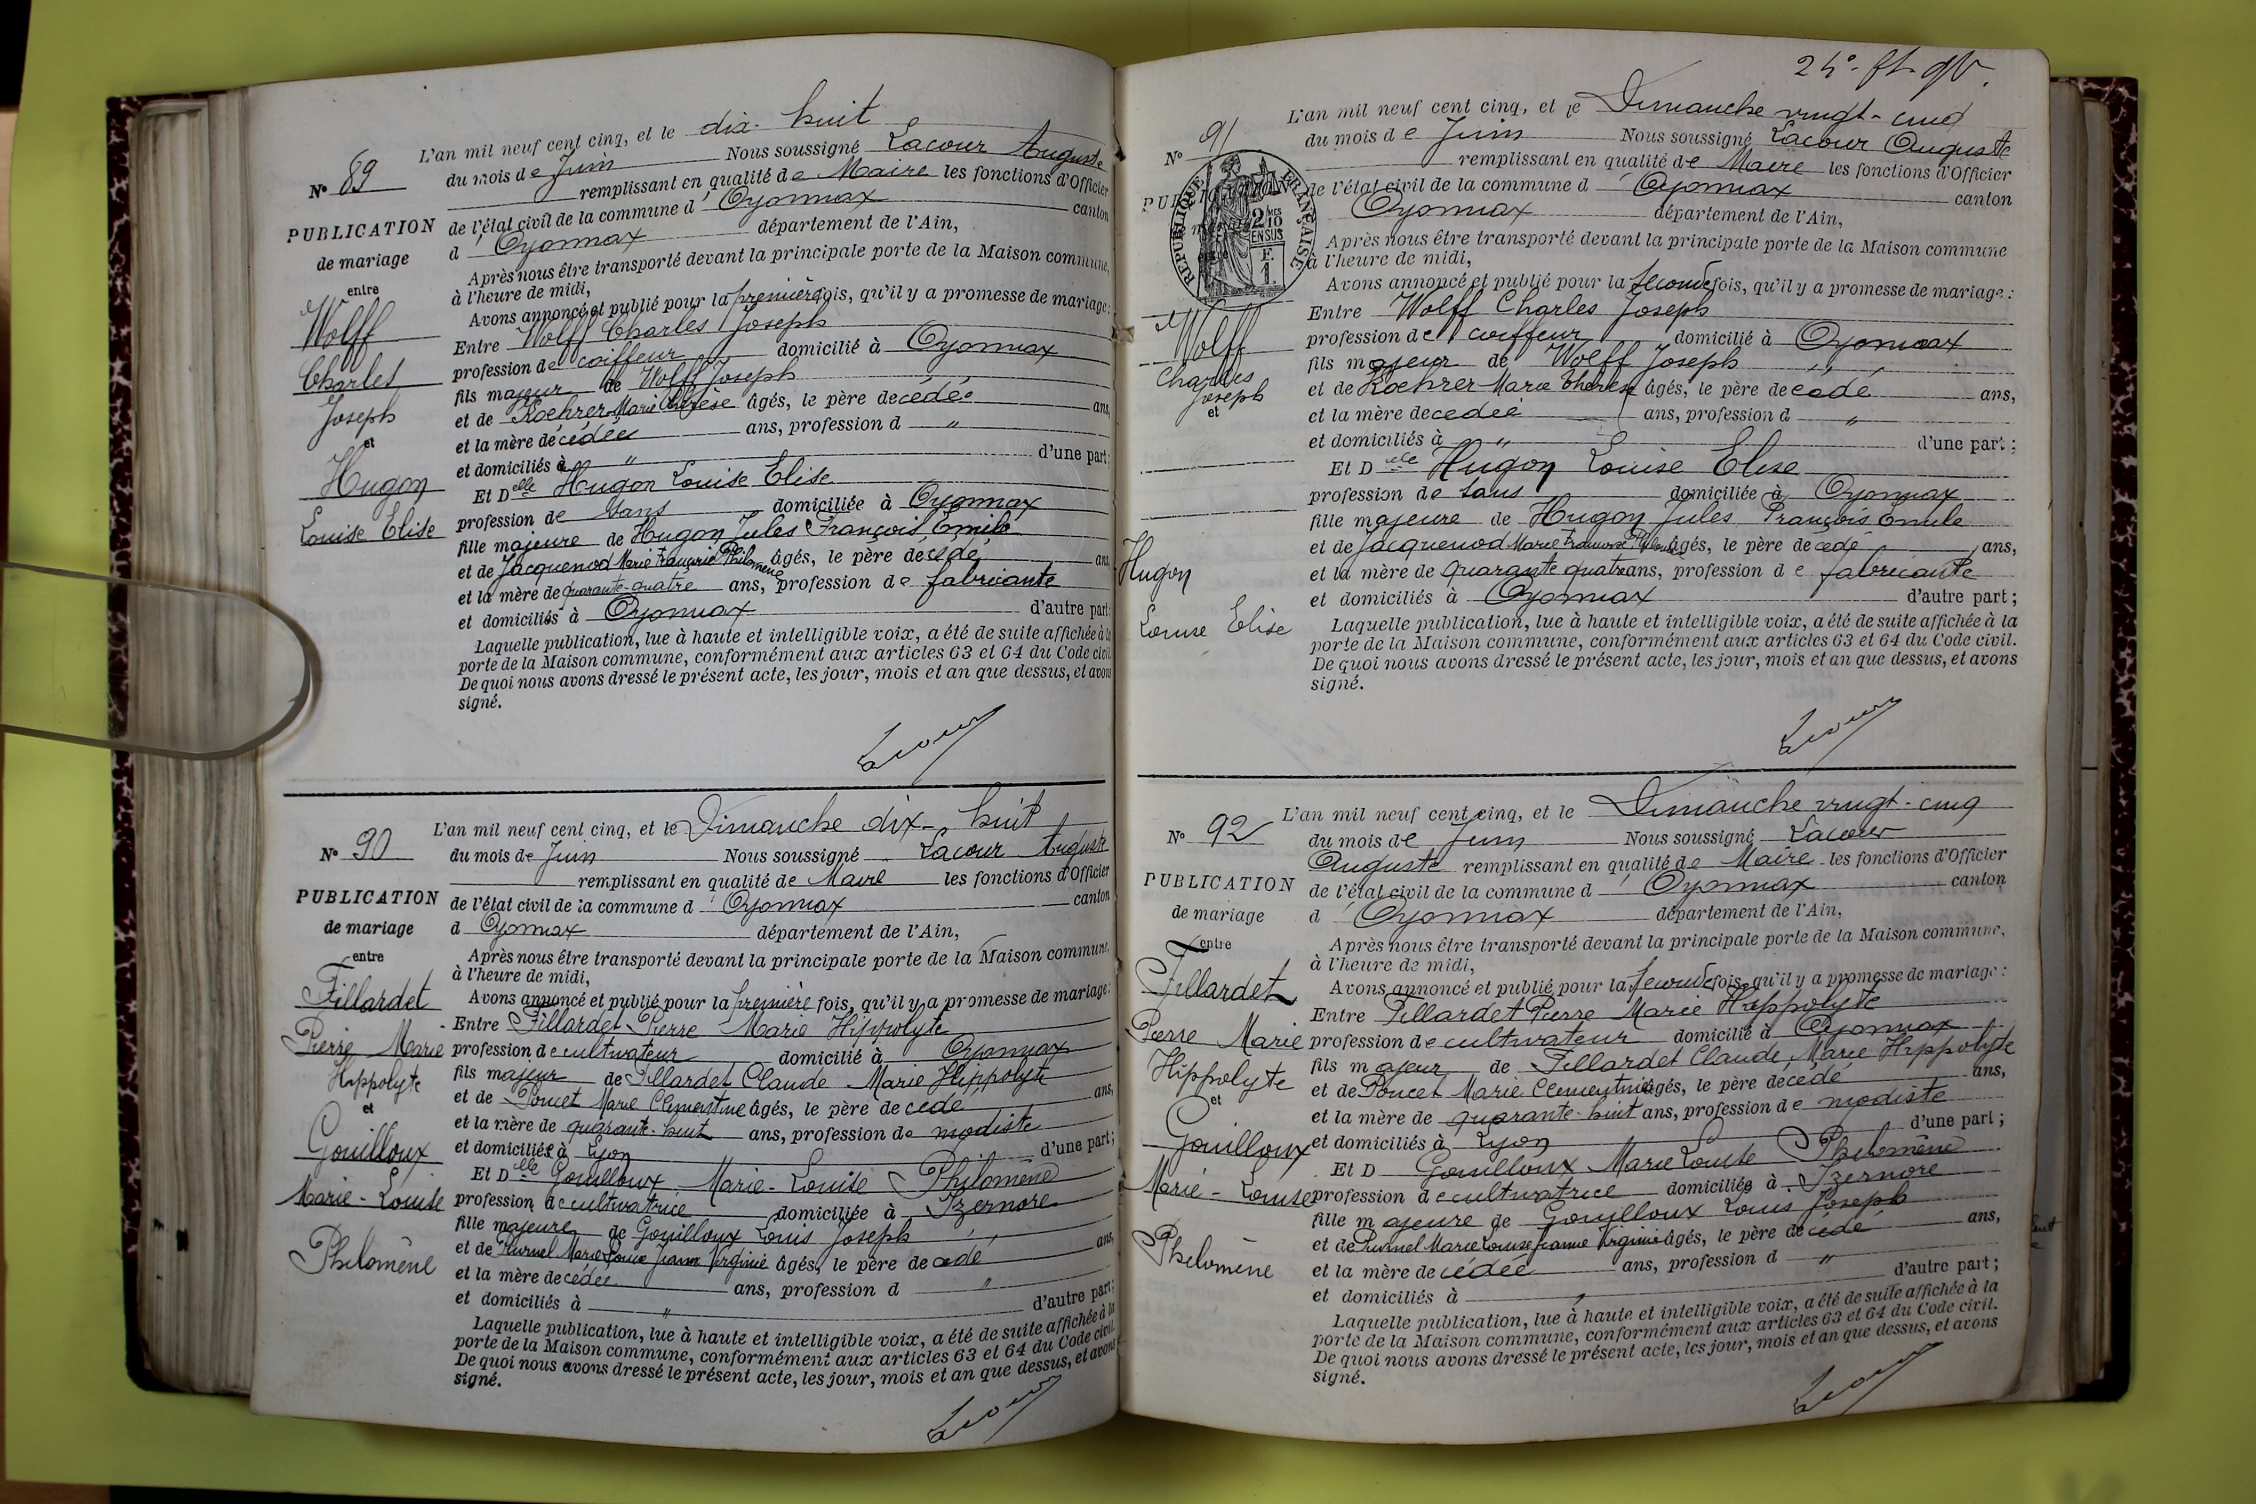 N° 89
PUBLICATION
de mariage
entre
Wolff
Charles
Joseph
et
Hugon
Louise Elise
L'an mil neuf cent cinq, et le dix-huit
du mois de Juin Nous soussigné Lacour Auguste
remplissant en qualité de Maire les fonctions d'Officier
de l'état civil de la commune d'Oyonnax canton
d'Oyonnax département de l'Ain,
Après nous être transporté devant la principale porte de la Maison commune,
à l'heure de midi,
Avons annoncé et publié pour la première fois, qu'il y a promesse de mariage :
Entre Wolff Charles Joseph
profession de coiffeur domicilié à Oyonnax
fils majeur de Wolff Joseph
et de Koehrer Marie Thérèse âgés, le père décédé ans,
et la mère décédée ans, profession d "
et domiciliés à " d'une part ;
Et Delle Hugon Louise Elise
profession de sans domiciliée à Oyonnax
fille majeure de Hugon Jules François Emile
et de Jacquenod Marie Françoise Philomène âgés, le père décédé ans
et la mère de quarante-quatre ans, profession de fabricante
et domiciliés à Oyonnax d'autre part ;
Laquelle publication, lue à haute et intelligible voix, a été de suite affichée à la
porte de la Maison commune, conformément aux articles 63 et 64 du Code civil.
De quoi nous avons dressé le présent acte, les jour, mois et an que dessus, et avons
signé.
Lacour
N° 90
PUBLICATION
de mariage
entre
Fillardet
Pierre Marie
Hippolyte
et
Gouilloux
Marie-Louise
Philomène
L'an mil neuf cent cinq, et le Dimanche dix-huit
du mois de Juin Nous soussigné Lacour Auguste
remplissant en qualité de Maire les fonctions d'Officier
de l'état civil de la commune d'Oyonnax canton
d'Oyonnax département de l'Ain,
Après nous être transporté devant la principale porte de la Maison commune,
à l'heure de midi,
Avons annoncé et publié pour la première fois, qu'il y a promesse de mariage :
Entre Fillardet Pierre Marie Hippolyte
profession de cultivateur domicilié à Oyonnax
fils majeur de Fillardet Claude Marie Hippolyte
et de Poncet Marie Clémentine âgés, le père décédé ans,
et la mère de quarante-huit ans, profession de modiste
et domiciliés à Lyon d'une part ;
Et Delle Gouilloux Marie-Louise Philomène
profession de cultivatrice domiciliée à Izernore
fille majeure de Gouilloux Louis Joseph
et de Marie Louise Jeanne Virginie âgés, le père décédé ans,
et la mère décédée ans, profession d "
et domiciliés à " d'autre part ;
Laquelle publication, lue à haute et intelligible voix, a été de suite affichée à la
porte de la Maison commune, conformément aux articles 63 et 64 du Code civil.
De quoi nous avons dressé le présent acte, les jour, mois et an que dessus, et avons
signé.
Lacour
N° 91
PUBLICATION
RÉPUBLIQUE FRANÇAISE
2 MES 10
EN SUS
F.
1
Wolff
Charles
Joseph
et
Hugon
Louise Elise
L'an mil neuf cent cinq, et le Dimanche vingt-cinq
du mois de Juin Nous soussigné Lacour Auguste
remplissant en qualité de Maire les fonctions d'Officier
de l'état civil de la commune d'Oyonnax canton
Oyonnax département de l'Ain,
Après nous être transporté devant la principale porte de la Maison commune
à l'heure de midi,
Avons annoncé et publié pour la seconde fois, qu'il y a promesse de mariage :
Entre Wolff Charles Joseph
profession de coiffeur domicilié à Oyonnax
fils majeur de Wolff Joseph
et de Koehrer Marie Thérèse âgés, le père décédé ans,
et la mère décédée ans, profession d "
et domiciliés à " d'une part ;
Et Delle Hugon Louise Elise
profession de sans domiciliée à Oyonnax
fille majeure de Hugon Jules François Emile
et de Jacquenod Marie Françoise Philomène âgés, le père décédé ans,
et la mère de quarante quatre ans, profession de fabricante
et domiciliés à Oyonnax d'autre part ;
Laquelle publication, lue à haute et intelligible voix, a été de suite affichée à la
porte de la Maison commune, conformément aux articles 63 et 64 du Code civil.
De quoi nous avons dressé le présent acte, les jour, mois et an que dessus, et avons
signé.
Lacour
N° 92
PUBLICATION
de mariage
entre
Fillardet
Pierre Marie
Hippolyte
et
Gouilloux
Marie-Louise
Philomène
L'an mil neuf cent cinq, et le Dimanche vingt-cinq
du mois de Juin Nous soussigné Lacour
Auguste remplissant en qualité de Maire les fonctions d'Officier
de l'état civil de la commune d'Oyonnax canton
d'Oyonnax département de l'Ain,
Après nous être transporté devant la principale porte de la Maison commune,
à l'heure de midi,
Avons annoncé et publié pour la seconde fois, qu'il y a promesse de mariage :
Entre Fillardet Pierre Marie Hippolyte
profession de cultivateur domicilié à Oyonnax
fils majeur de Fillardet Claude Marie Hippolyte
et de Poncet Marie Clémentine âgés, le père décédé ans,
et la mère de quarante-huit ans, profession de modiste
et domiciliés à Lyon d'une part ;
Et D Gouilloux Marie Louise Philomène
profession de cultivatrice domiciliée à Izernore
fille majeure de Gouilloux Louis Joseph
et de Marie Louise Jeanne Virginie âgés, le père décédé ans,
et la mère décédée ans, profession d "
et domiciliés à " d'autre part ;
Laquelle publication, lue à haute et intelligible voix, a été de suite affichée à la
porte de la Maison commune, conformément aux articles 63 et 64 du Code civil.
De quoi nous avons dressé le présent acte, les jour, mois et an que dessus, et avons
signé.
Lacour